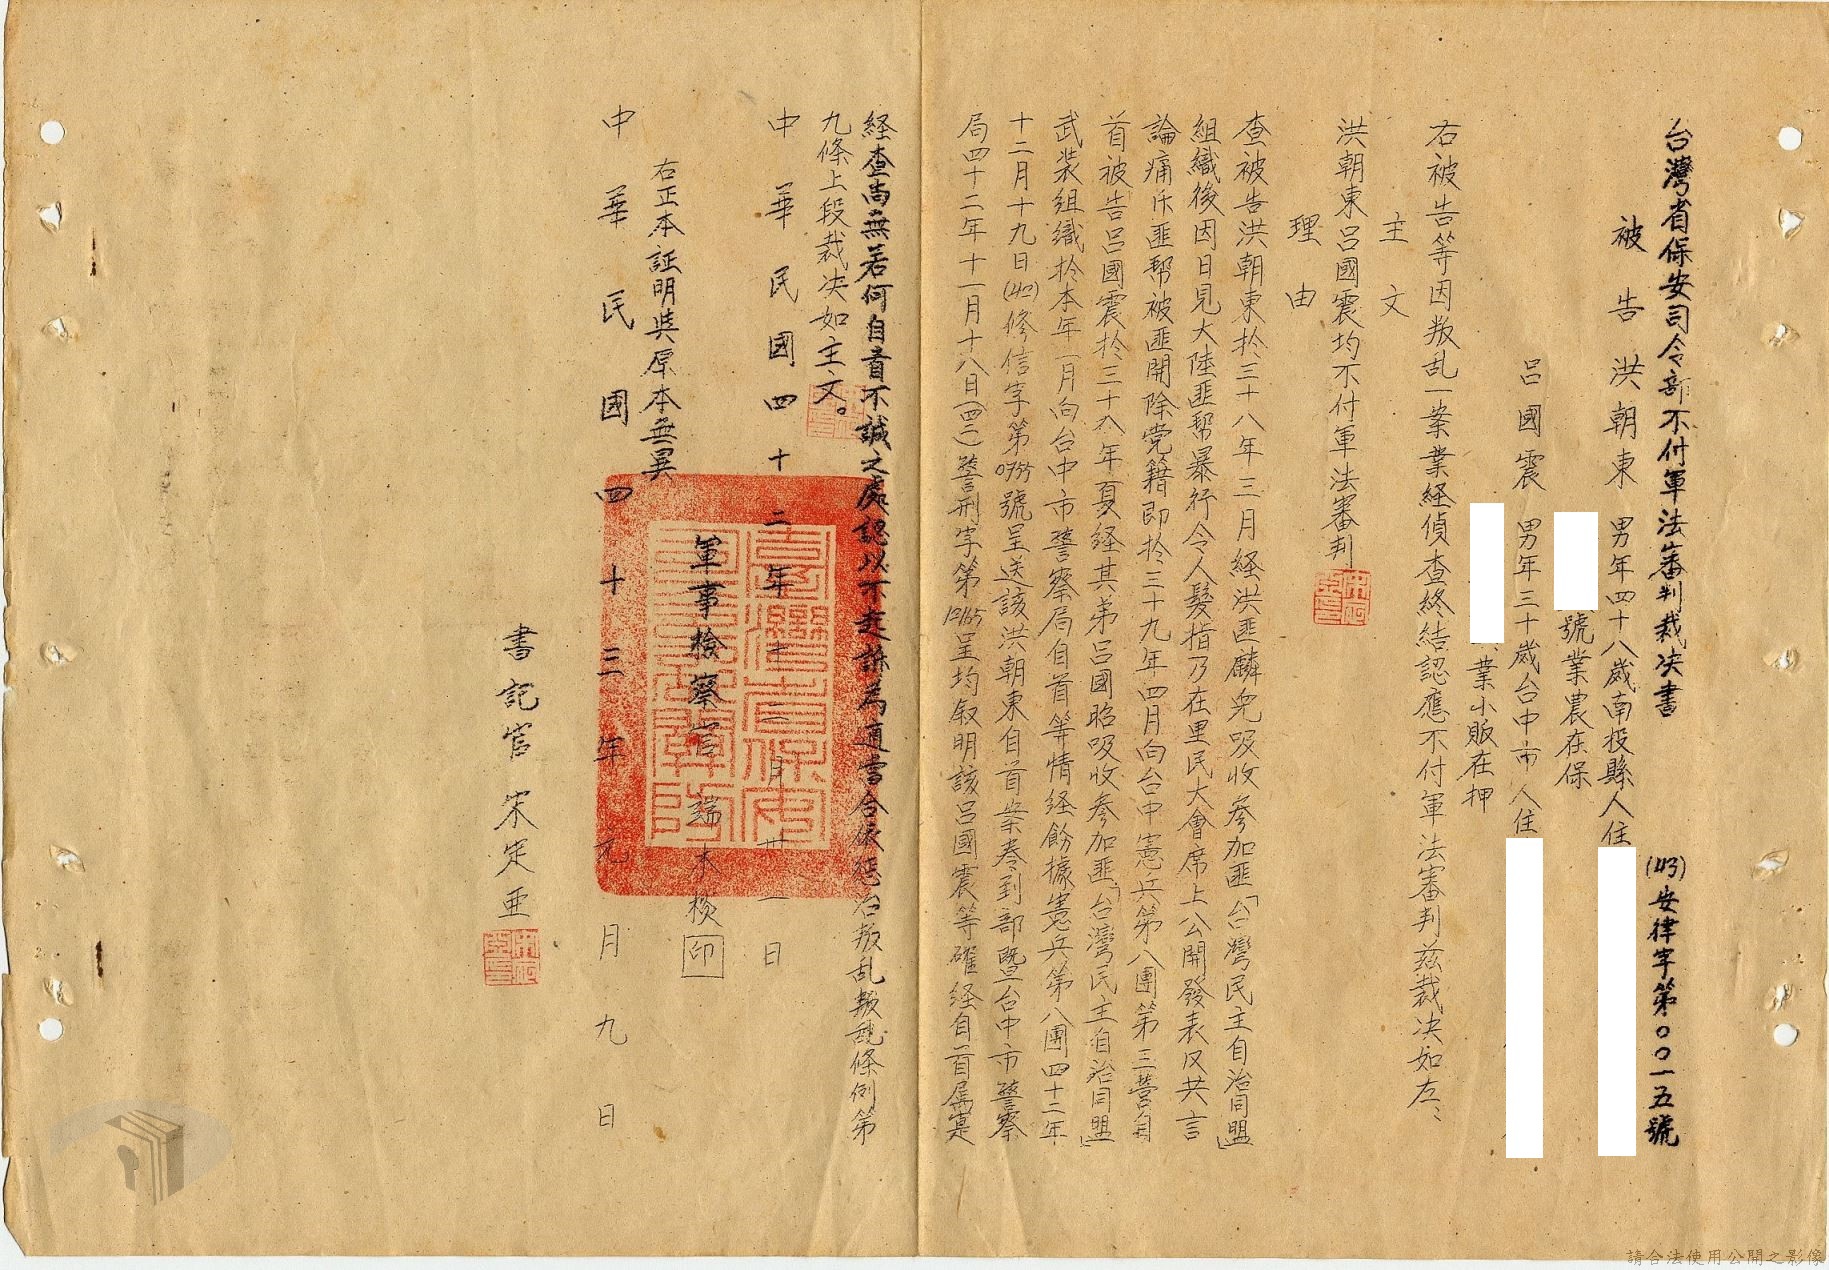 台灣省保安司令部不付軍法審判裁決書
(43)安律字第〇〇一五號
被告 洪朝東 男年四十八歲南投縣人住
號業農在保
呂國震 男年三十歲台中市人住
業小販在押
右被告等因叛乱一案業経偵查終結認應不付軍法審判茲裁决如左、
主文
洪朝東呂國震均不付軍法審判
理由
查被告洪朝東扵三十八年三月経洪匪麟兒吸收參加匪「台灣民主自治同盟」
組織後因日見大陸匪幫暴行令人髮指乃在里民大會席上公開發表反共言
論痛斥匪幫被匪開除党籍即扵三十九年四月向台中憲兵第八團第三營自
首被告呂國震扵三十八年夏経其弟呂國昭吸收參加匪「台灣民主自治同盟」
武装組織扵本年一月向台中市警察局自首等情経飭據憲兵第八團四十二年
十二月十九日(42)修信字第0755號呈送該洪朝東自首案卷到部暨台中市警察
局四十二年十一月十八日(四二)警刑字第12165呈均叙明該呂國震等確経自首屬寔
経查尚無若何自首不誠之處認以不起訴為適當合依惩治叛乱叛亂條例第
九條上段裁决如主文。
中華民國四十二年十二月卅一日
軍事檢察官 端木棪 印
右正本証明與原本無異
中華民國四十三年元月九日
書記官 宋定亜
請合法使用公開之影像